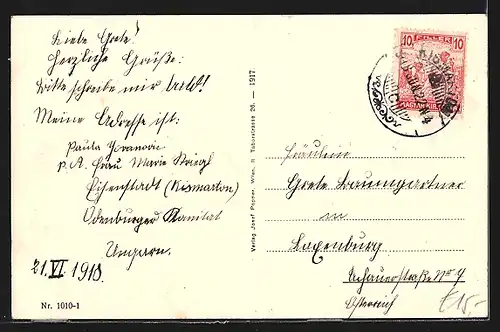 Liebe Grete!
Herzliche Grüße!
Bitte schreibe mir bald!
Meine Adresse ist:
Paula Jovanovic
p. A. Frau Marie
Eisenstadt (Kismarton)
Ödenburger Komitat
Ungarn.
21. VI. 1918.
Nr. 1010-1
Verlag Josef Popper, Wien, II Taborstrasse 26. — 1917.
10 FILLER 10
MAGYAR KIR.
KISMARTON
Fräulein
Grete Baumgartner
in
Laxenburg
Achauerstraße No 4
Österreich
€15-